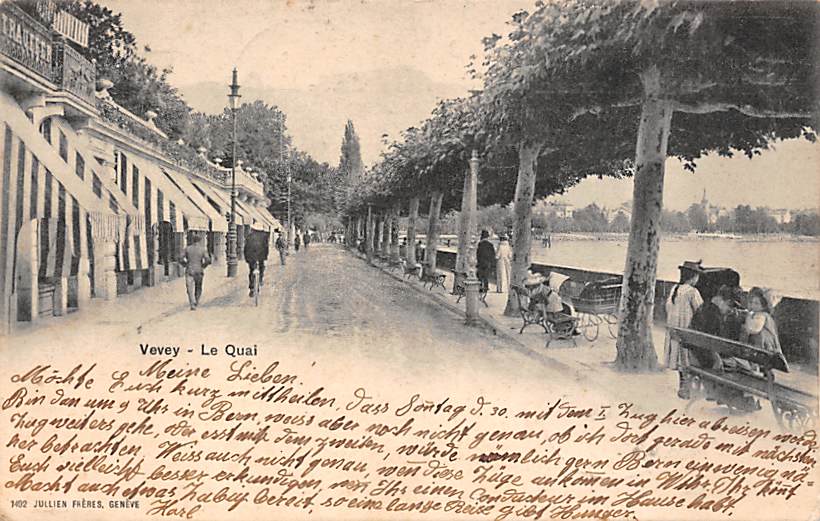 TRAITEUR
Vevey - Le Quai
Meine Lieben!
Möchte Euch kurz mittheilen, dass Sonntag d. 30. mit dem I Zug hier abreisen werde
Bin dan um 9 Uhr in Bern, weiss aber noch nicht genau, ob ich dort gerade mit nächsten
Zug weiters gehe, oder erst mit dem zweiten, würde nämlich gern Bern ein wenig nä-
her betrachten. Weiss auch nicht genau, wen diese Züge ankomen in Wthr. Ihr könt
Euch vielleicht besser erkundigen, wen Ihr einen Condukteur im Hause habt,
Macht auch etwas habuy bereit, so eine lange Reise gibt Hunger.
Karl
1402 JULLIEN FRÈRES, GENÈVE